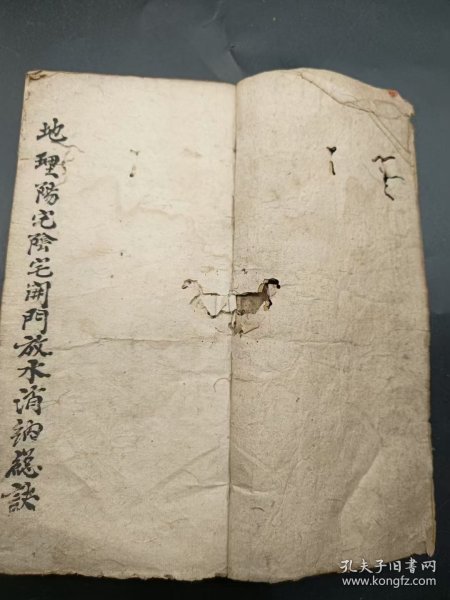 地理陽宅陰宅開門放水消納總訣
孔夫子旧书网
www.kongfz.com